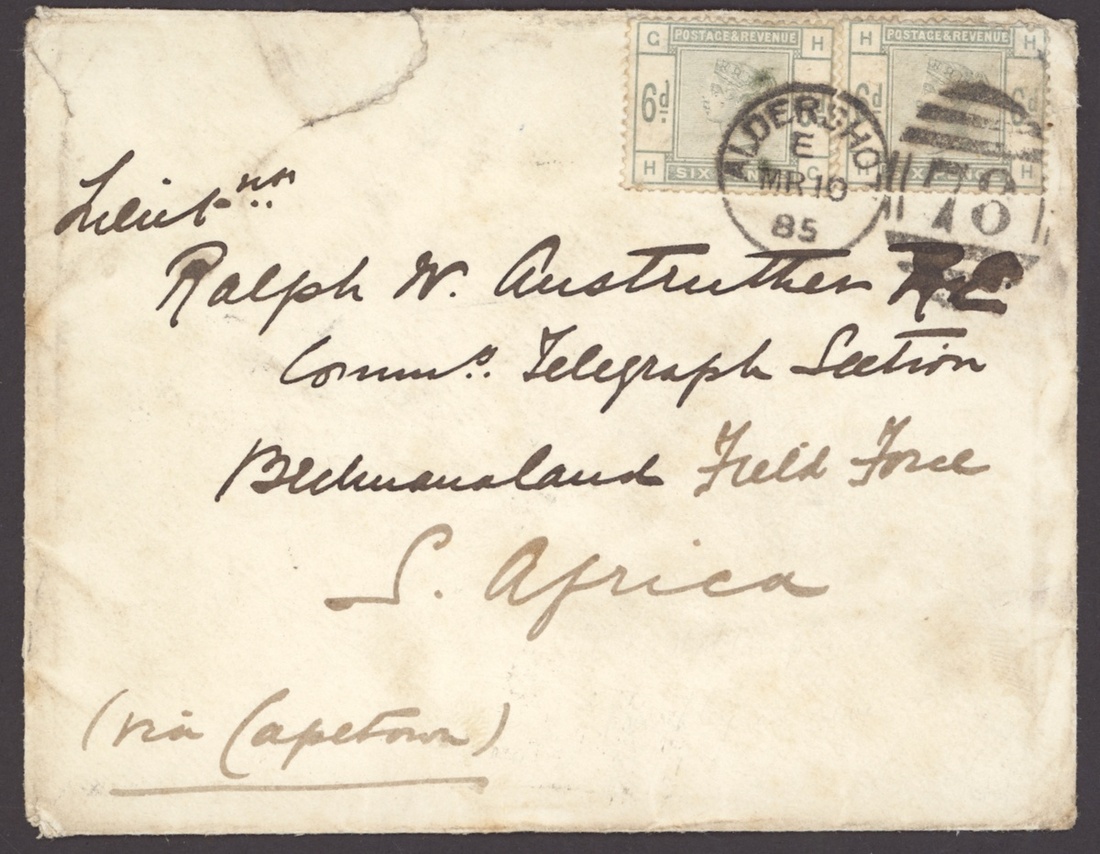 G POSTAGE & REVENUE H
H POSTAGE & REVENUE H
6d
H
G
H
H
ALDERSHO
E
MR 10
85
Lieut
Ralph W. Anstruther R.E.
Telegraph Section
Bechuanaland Field Force
S. Africa
(via Capetown)